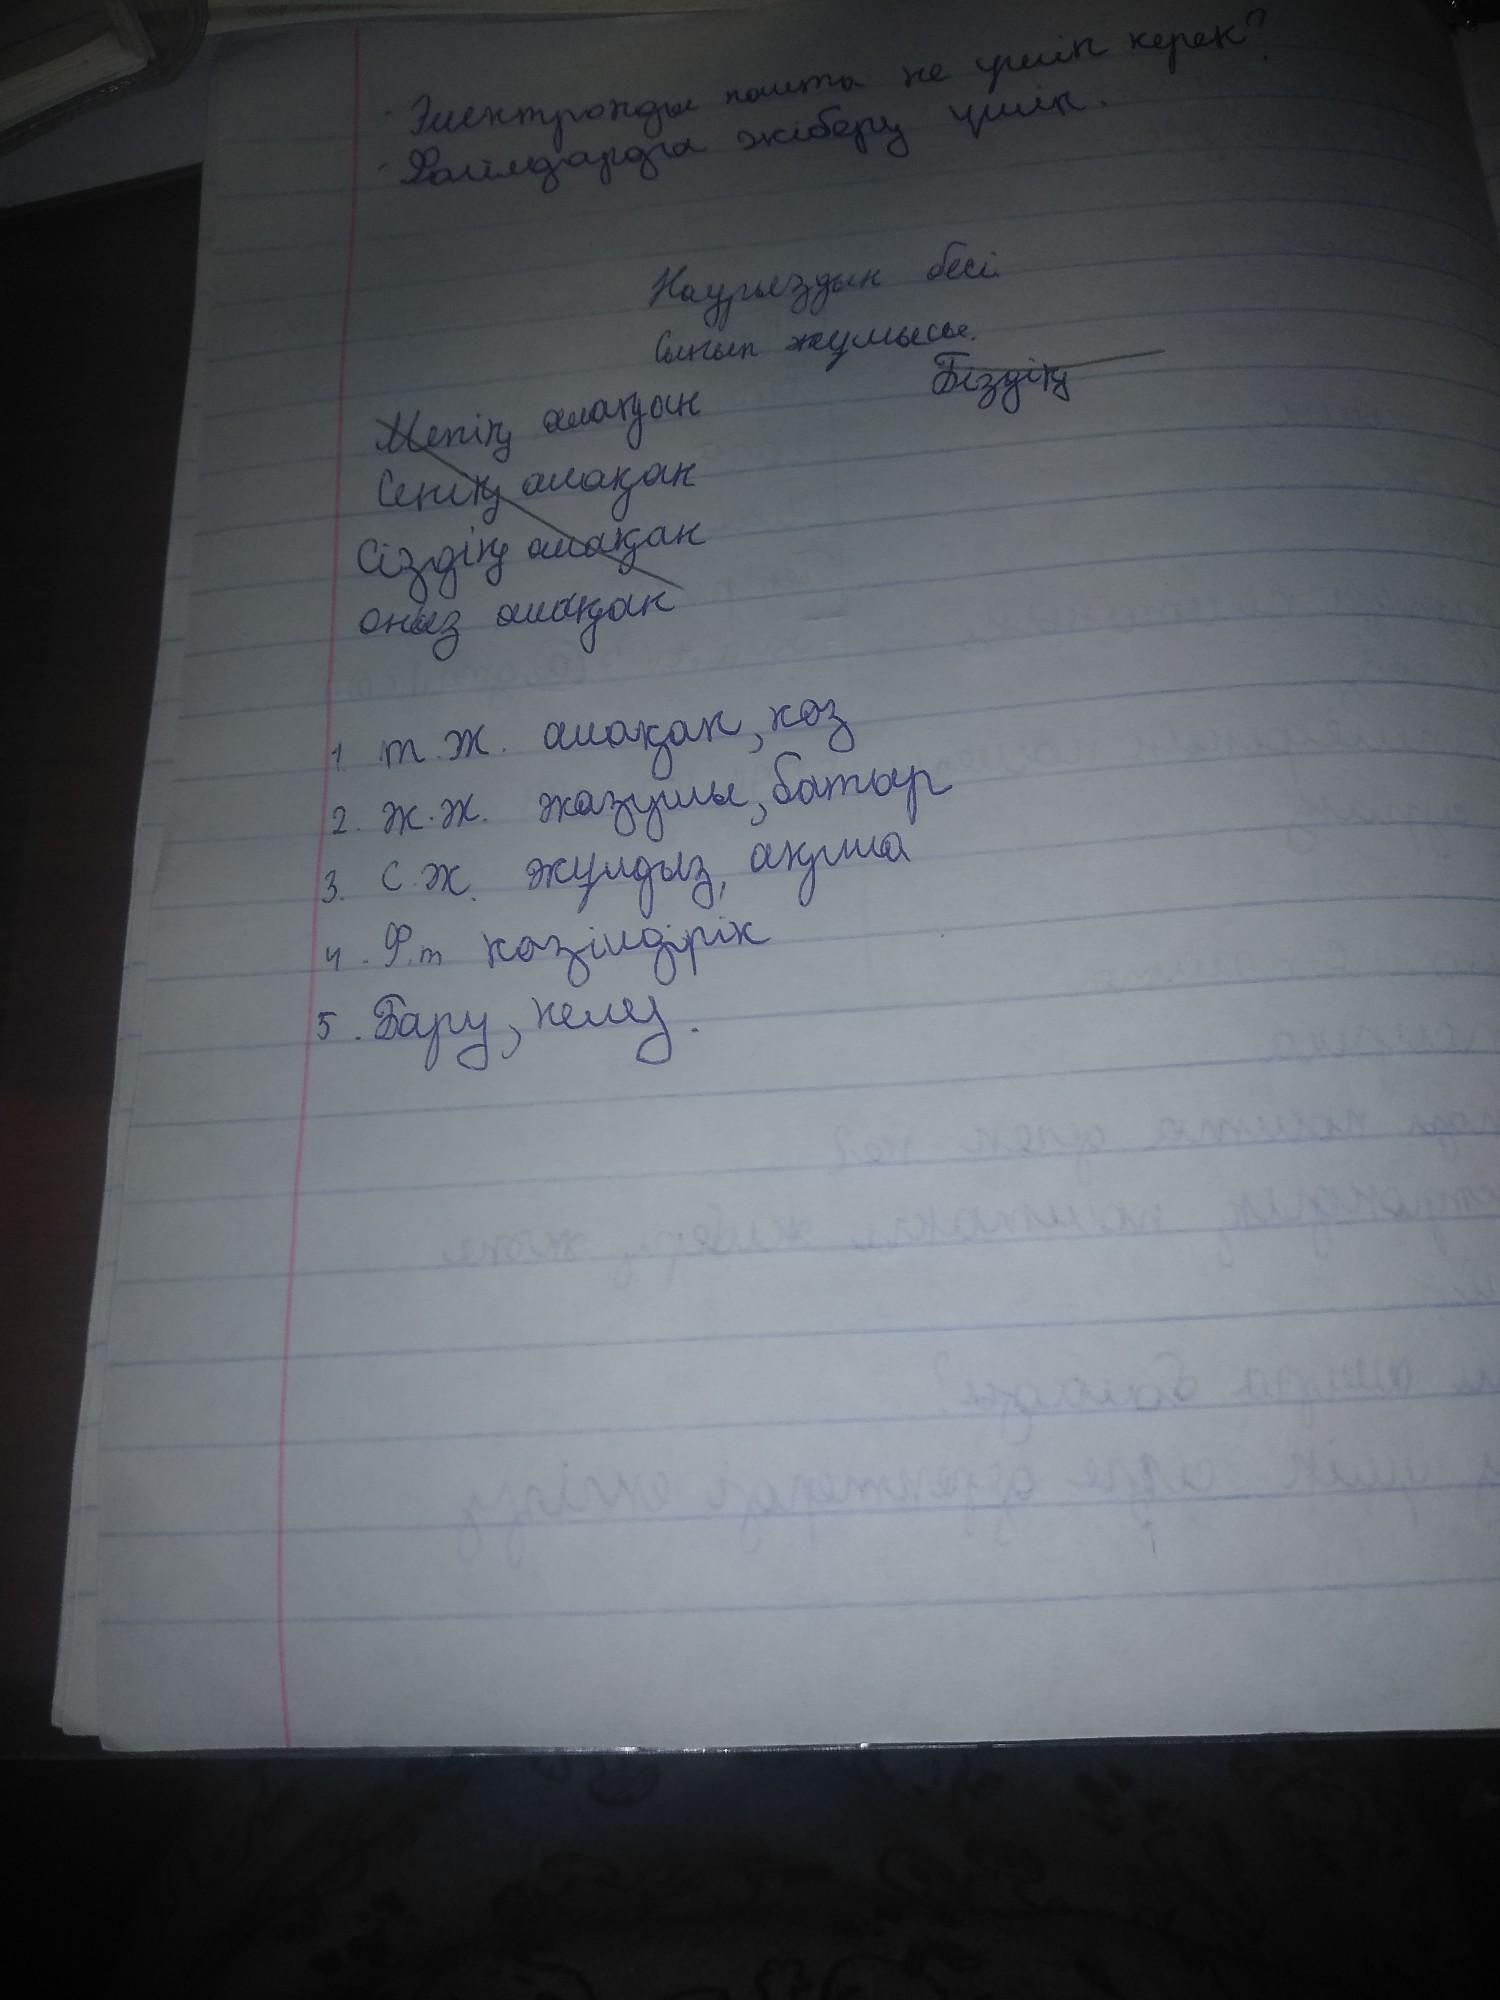 - Электронды пошта не үшін керек?
- Файлдарда жіберу үшін.
Наурыздын бесі.
Сынып жұмысы.
Біздің
Менің алақан
Сенің алақан
Сіздің алақан
оныз алақан
1. т.ж. алақан, көз
2. ж.ж. жазушы, батыр
3. с.ж. жұлдыз, ақша
4. Ф.т көзілдірік
5. Бару, келу.